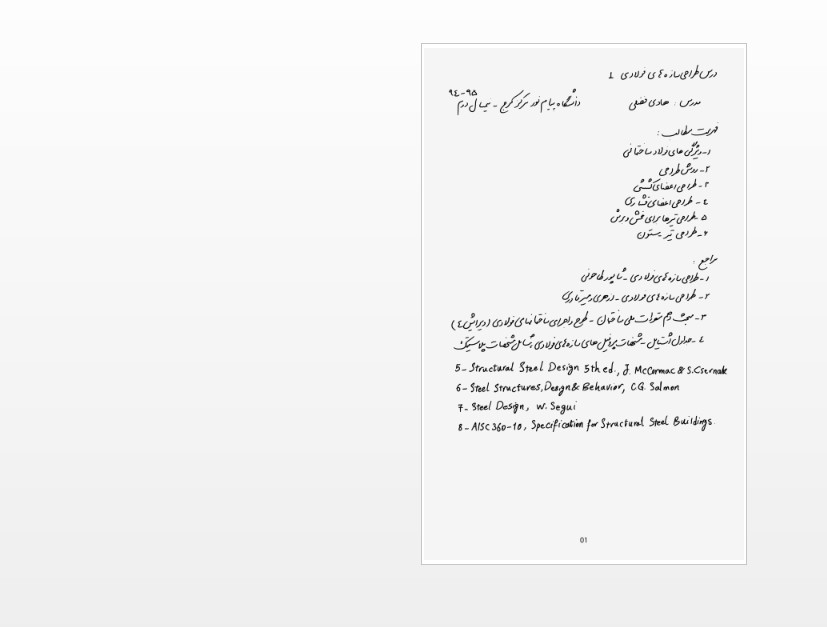 درس طراحی سازه های فولادی 1
مدرس : هادی فضلی
دانشگاه پیام نور مرکز کرج - نیمسال دوم ۹۴-۹۵
فهرست مطالب :
۱- ویژگی های فولاد ساختمانی
۲- روش طراحی
۳- طراحی اعضای کششی
۴- طراحی اعضای فشاری
۵- طراحی تیرها برای خمش و برش
۶- طراحی تیر ستون
مراجع :
۱- طراحی سازه های فولادی - شاپور طاحونی
۲- طراحی سازه های فولادی - ازهری و میرقادری
۳- مبحث دهم مقررات ملی ساختمان - طرح و اجرای ساختمانهای فولادی (ویرایش ۴)
۴- جداول اشتیل - مشخصات پروفیل های سازه های فولادی شامل مشخصات پلاستیک
5- Structural Steel Design 5th ed., J. McCormac & S. Csernak
6- Steel Structures, Design & Behavior, C.G. Salmon
7- Steel Design, W. Segui
8- AISC 360-10, Specification for Structural Steel Buildings.
01